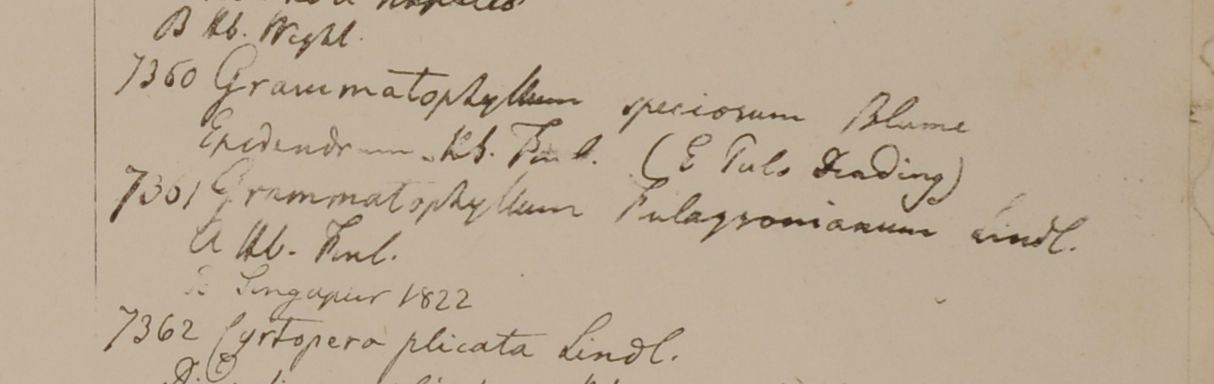 B Hb. Wight.
7360 Grammatophyllum speciosum Blume
Epidendrum Hb. Finl. (E Pulo Dinding)
7361 Grammatophyllum Finlaysonianum Lindl.
a Hb. Finl.
Singapur 1822
7362 Cyrtopera plicata Lindl.